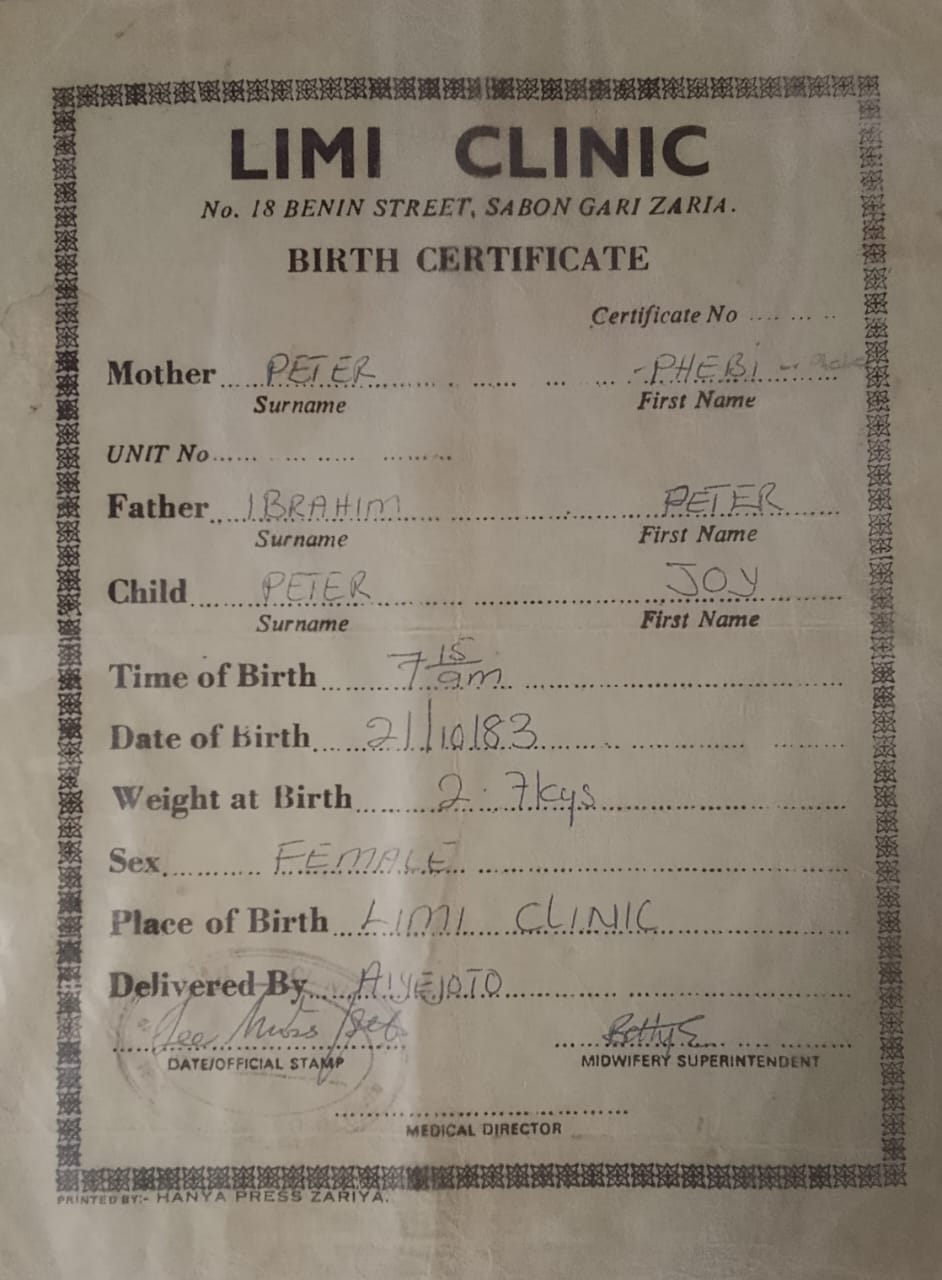 LIMI CLINIC
No. 18 BENIN STREET, SABON GARI ZARIA.
BIRTH CERTIFICATE
Certificate No .... ... ..
Mother ... PETER ... -PHEBI -
Surname First Name
UNIT No ...... ... ..... ........
Father ... IBRAHIM ... PETER
Surname First Name
Child ... PETER ... JOY
Surname First Name
Time of Birth ... 7 15 am
Date of Birth ... 21/10/83
Weight at Birth ... 2.7kgs
Sex ... FEMALE
Place of Birth ... LIMI CLINIC
Delivered By ... AIYEJOTO
DATE/OFFICIAL STAMP MIDWIFERY SUPERINTENDENT
MEDICAL DIRECTOR
PRINTED BY:- HANYA PRESS ZARIYA.